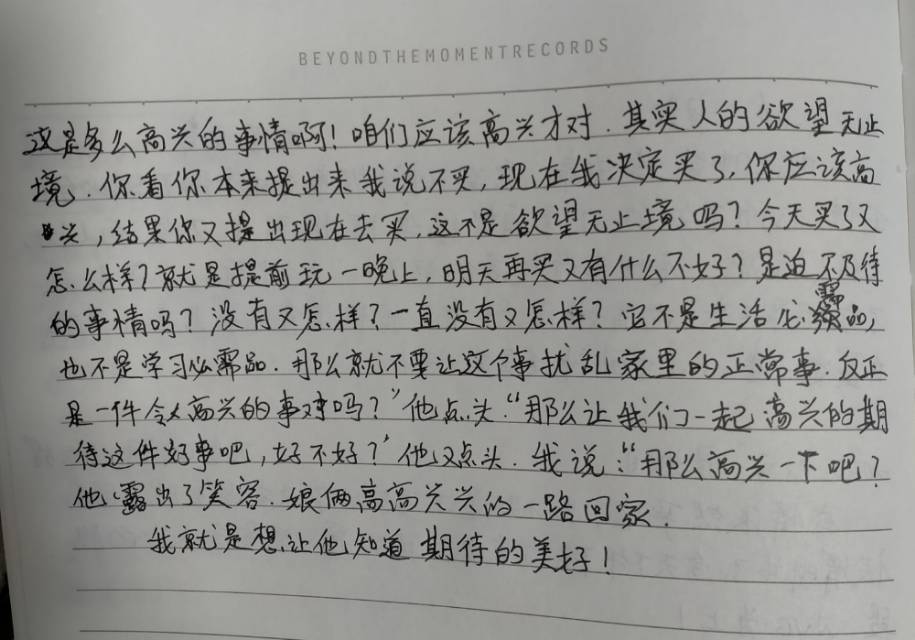 BEYONDTHEMOMENTRECORDS
这是多么高兴的事情啊！咱们应该高兴才对．其实人的欲望无止
境．你看你本来提出来我说不买，现在我决定买了，你应该高
兴，结果你又提出现在去买，这不是欲望无止境吗？今天买了又
怎么样？就是提前玩一晚上，明天再买又有什么不好？是迫不及待
的事情吗？没有又怎样？一直没有又怎样？它不是生活必需品，
也不是学习必需品．那么就不要让这个事扰乱家里的正常事．反正
是一件令人高兴的事对吗？”他点头．“那么让我们一起高兴的期
待这件好事吧，好不好？”他又点头．我说：“那么高兴一下吧？
他露出了笑容．娘俩高高兴兴的一路回家．
我就是想让他知道期待的美好！